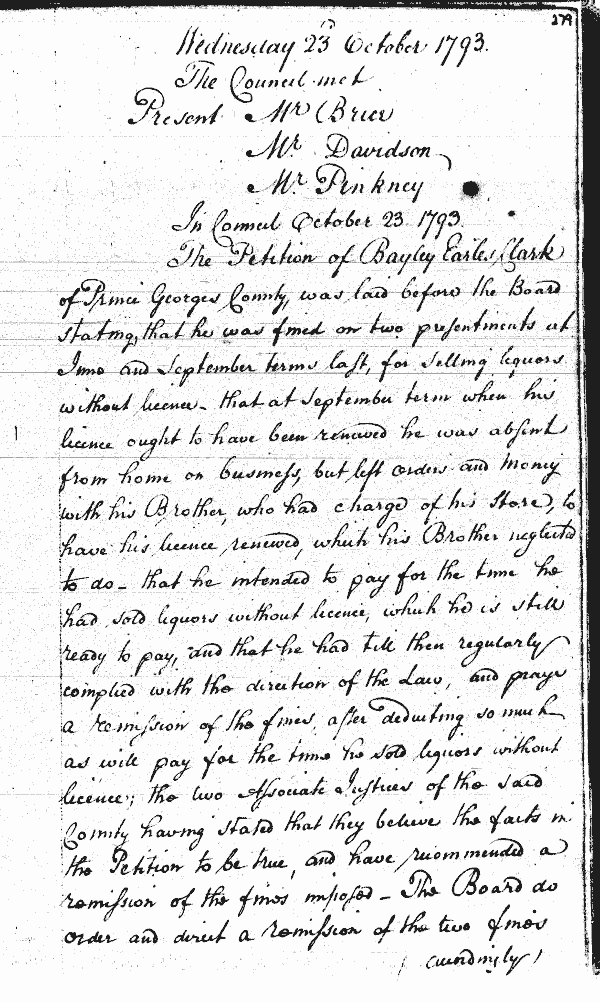 279
Wednesday 23d October 1793.
The Council met
Present Mr Brice
Mr. Davidson
Mr. Pinkney
In Council October 23. 1793.
The Petition of Bayley Earles Clark
of Prince Georges County, was laid before the Board
stating, that he was fined on two presentments at
June and September terms last, for selling liquors
without licence - that at September term when his
licence ought to have been renewed he was absent
from home on business, but left orders and money
with his Brother, who had charge of his Store, to
have his licence renewed, which his Brother neglected
to do - that he intended to pay for the time he
had sold liquors without licence, which he is still
ready to pay, and that he had till then regularly
complied with the direction of the Law, and prays
a remission of the fines, after deducting so much
as will pay for the time he sold liquors without
licence; the two Associate Justices of the said
County having stated that they believe the facts in
the Petition to be true, and have recommended a
remission of the fines imposed - The Board do
order and direct a remission of the two fines
accordingly